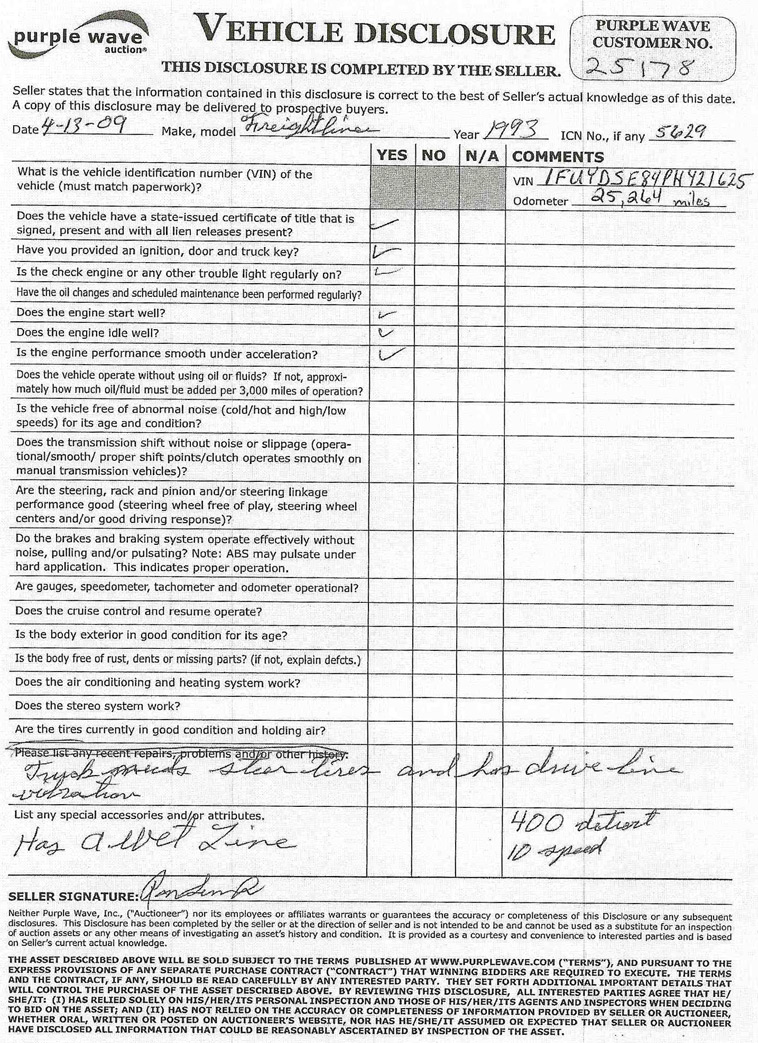 purple wave
auction®
VEHICLE DISCLOSURE
THIS DISCLOSURE IS COMPLETED BY THE SELLER.
PURPLE WAVE
CUSTOMER NO.
25178
Seller states that the information contained in this disclosure is correct to the best of Seller's actual knowledge as of this date.
A copy of this disclosure may be delivered to prospective buyers.
Date 4-13-09 Make, model Freightliner Year 1993 ICN No., if any 5629
YES NO N/A COMMENTS
What is the vehicle identification number (VIN) of the
vehicle (must match paperwork)?
VIN 1FUYDSE84PH421625
Odometer 25,264 miles
Does the vehicle have a state-issued certificate of title that is
signed, present and with all lien releases present?
Have you provided an ignition, door and truck key?
Is the check engine or any other trouble light regularly on?
Have the oil changes and scheduled maintenance been performed regularly?
Does the engine start well?
Does the engine idle well?
Is the engine performance smooth under acceleration?
Does the vehicle operate without using oil or fluids? If not, approxi-
mately how much oil/fluid must be added per 3,000 miles of operation?
Is the vehicle free of abnormal noise (cold/hot and high/low
speeds) for its age and condition?
Does the transmission shift without noise or slippage (opera-
tional/smooth/ proper shift points/clutch operates smoothly on
manual transmission vehicles)?
Are the steering, rack and pinion and/or steering linkage
performance good (steering wheel free of play, steering wheel
centers and/or good driving response)?
Do the brakes and braking system operate effectively without
noise, pulling and/or pulsating? Note: ABS may pulsate under
hard application. This indicates proper operation.
Are gauges, speedometer, tachometer and odometer operational?
Does the cruise control and resume operate?
Is the body exterior in good condition for its age?
Is the body free of rust, dents or missing parts? (if not, explain defcts.)
Does the air conditioning and heating system work?
Does the stereo system work?
Are the tires currently in good condition and holding air?
Please list any recent repairs, problems and/or other history:
Truck needs steer tires and has drive line
vibration
List any special accessories and/or attributes.
Has A Wet Line
400 detroit
10 speed
SELLER SIGNATURE:
Neither Purple Wave, Inc., ("Auctioneer") nor its employees or affiliates warrants or guarantees the accuracy or completeness of this Disclosure or any subsequent
disclosures. This Disclosure has been completed by the seller or at the direction of seller and is not intended to be and cannot be used as a substitute for an inspection
of auction assets or any other means of investigating an asset's history and condition. It is provided as a courtesy and convenience to interested parties and is based
on Seller's current actual knowledge.
THE ASSET DESCRIBED ABOVE WILL BE SOLD SUBJECT TO THE TERMS PUBLISHED AT WWW.PURPLEWAVE.COM ("TERMS"), AND PURSUANT TO THE
EXPRESS PROVISIONS OF ANY SEPARATE PURCHASE CONTRACT ("CONTRACT") THAT WINNING BIDDERS ARE REQUIRED TO EXECUTE. THE TERMS
AND THE CONTRACT, IF ANY, SHOULD BE READ CAREFULLY BY ANY INTERESTED PARTY. THEY SET FORTH ADDITIONAL IMPORTANT DETAILS THAT
WILL CONTROL THE PURCHASE OF THE ASSET DESCRIBED ABOVE. BY REVIEWING THIS DISCLOSURE, ALL INTERESTED PARTIES AGREE THAT HE/
SHE/IT: (I) HAS RELIED SOLELY ON HIS/HER/ITS PERSONAL INSPECTION AND THOSE OF HIS/HER/ITS AGENTS AND INSPECTORS WHEN DECIDING
TO BID ON THE ASSET; AND (II) HAS NOT RELIED ON THE ACCURACY OR COMPLETENESS OF INFORMATION PROVIDED BY SELLER OR AUCTIONEER,
WHETHER ORAL, WRITTEN OR POSTED ON AUCTIONEER'S WEBSITE, NOR HAS HE/SHE/IT ASSUMED OR EXPECTED THAT SELLER OR AUCTIONEER
HAVE DISCLOSED ALL INFORMATION THAT COULD BE REASONABLY ASCERTAINED BY INSPECTION OF THE ASSET.